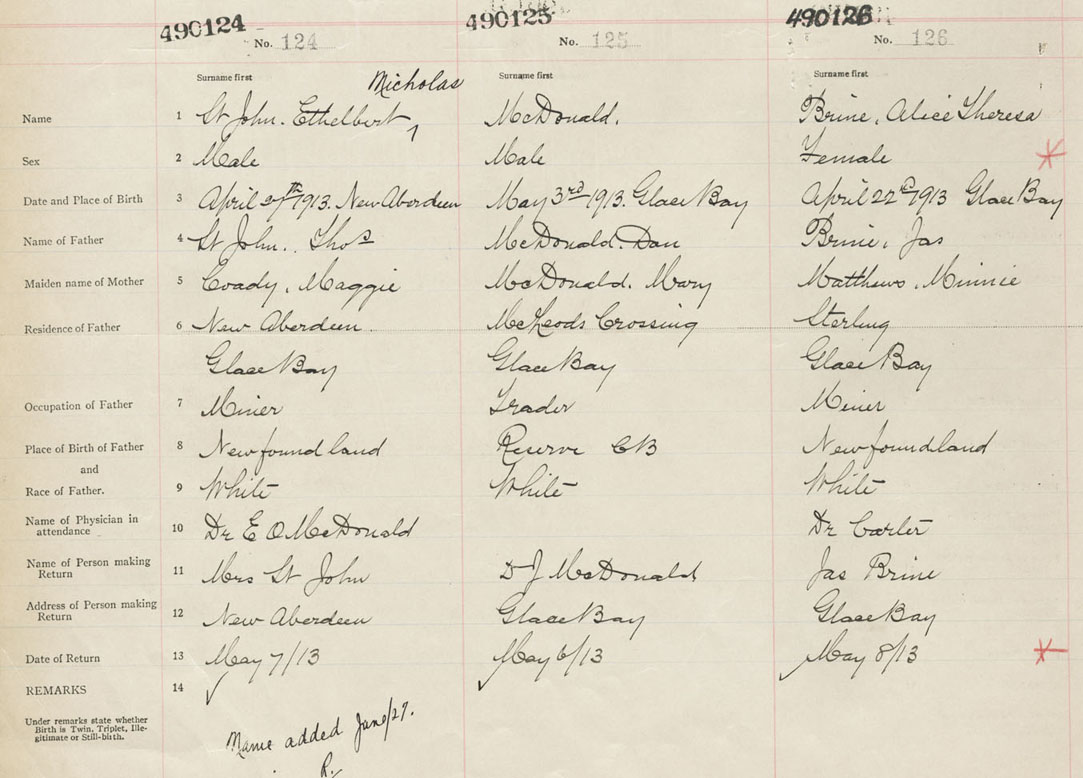 490124 490125 490126
No. 124 No. 125 No. 126
Surname first Surname first Surname first
Nicholas
Name 1 St John. Ethelbert, McDonald. Brine, Alice Theresa
Sex 2 Male Male Female
Date and Place of Birth 3 April 27th 1913. New Aberdeen May 3rd 1913. Glace Bay April 22nd 1913 Glace Bay
Name of Father 4 St John. Thos McDonald. Dan Brine, Jas
Maiden name of Mother 5 Coady, Maggie McDonald. Mary Matthews, Minnie
Residence of Father 6 New Aberdeen. McLeods Crossing Sterling
Glace Bay Glace Bay Glace Bay
Occupation of Father 7 Miner Trader Miner
Place of Birth of Father 8 Newfoundland Reserve CB Newfoundland
and
Race of Father. 9 White White White
Name of Physician in
attendance 10 Dr E O McDonald Dr Carter
Name of Person making
Return 11 Mrs St John D J McDonald Jas Brine
Address of Person making
Return 12 New Aberdeen Glace Bay Glace Bay
Date of Return 13 May 7/13 May 6/13 May 8/13
REMARKS 14
Under remarks state whether
Birth is Twin, Triplet, Ille-
gitimate or Still-birth.
Name added June/27.
R.